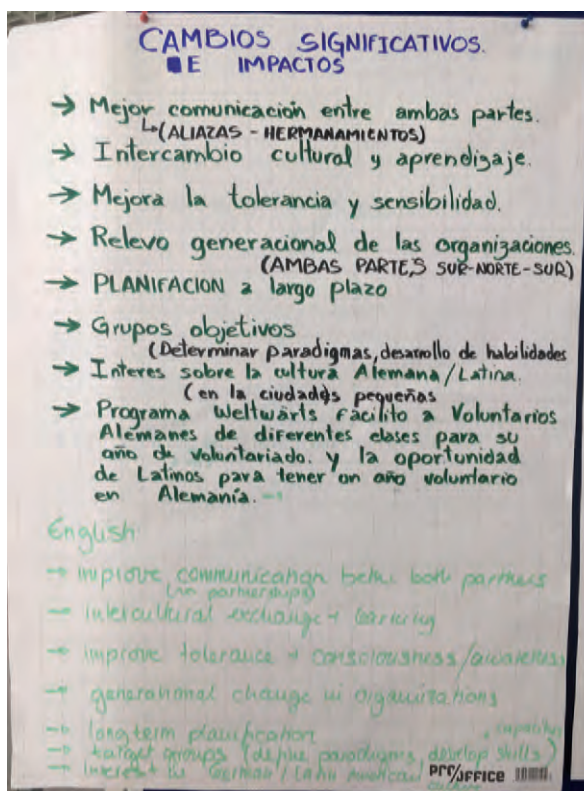 CAMBIOS SIGNIFICATIVOS.
E IMPACTOS
→ Mejor comunicación entre ambas partes.
↳(ALIAZAS - HERMANAMIENTOS)
→ Intercambio cultural y aprendizaje.
→ Mejora la tolerancia y sensibilidad.
→ Relevo generacional de las organizaciones.
(AMBAS PARTES SUR-NORTE-SUR)
→ PLANIFACION a largo plazo
→ Grupos objetivos
(Determinar paradigmas, desarrollo de habilidades
→ Interes sobre la cultura Alemana/Latina.
(en la ciudades pequeñas
→ Programa Weltwärts facilito a Voluntarios
Alemanes de diferentes clases para su
año de voluntariado. y la oportunidad
de Latinos para tener un año voluntario
en Alemania.
English
→ improve communication betw. both partners
partnerships)
→ intercultural exchange + learning
→ improve tolerance + consciousness/awareness
→ generational change in organizations
→ longterm planification
→ target groups (define paradigms, develop skills)
→ interest in German/Latin American
culture
OFFICE